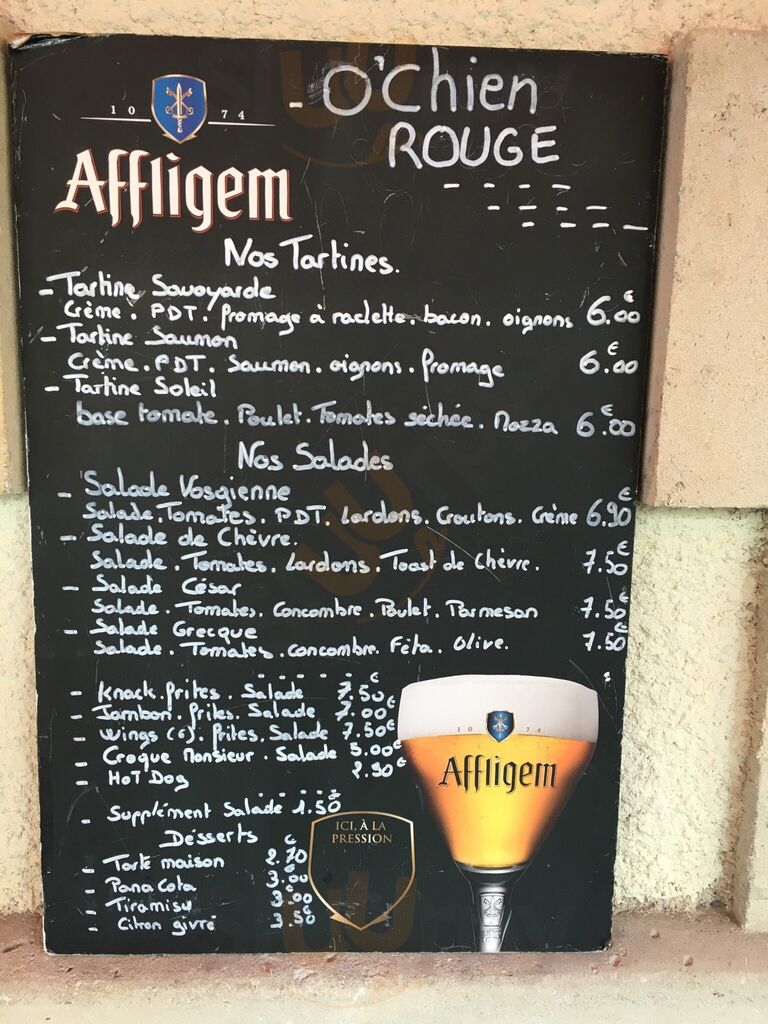 - O'Chien
ROUGE
10 74
Affligem
Nos Tartines.
- Tartine Savoyarde
Crème. PDT. fromage à raclette. bacon. oignons 6.00€
- Tartine Saumon
Crème. PDT. Saumon. oignons. fromage 6.00€
- Tartine Soleil
base tomate. Poulet. Tomates séchée. Mozza 6.00€
Nos Salades
- Salade Vosgienne
Salade. Tomates. PDT. Lardons. Croutons. Crème 6.90€
- Salade de Chèvre.
Salade. Tomates. Lardons. Toast de Chèvre. 7.50€
- Salade César
Salade. Tomates. Concombre. Poulet. Parmesan 7.50€
- Salade Grecque
Salade. Tomates. concombre. Féta. Olive. 7.50€
- Knack. frites. Salade 7.50€
- Jambon. frites. Salade 7.00€
- Wings (6). frites. Salade 7.50€
- Croque Monsieur. Salade 5.00€
- HoT Dog 2.90€
- Supplément Salade 1.50€
Desserts
- Tarte maison 2.70€
- Pana Cota 3.00€
- Tiramisu 3.00€
- Citron givré 3.50€
ICI, À LA
PRESSION
10 74
Affligem